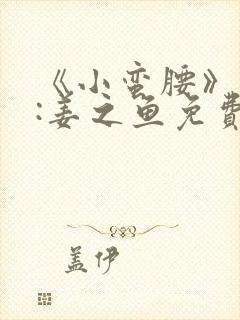 《小蛮腰》
:姜之鱼免費
盖伊